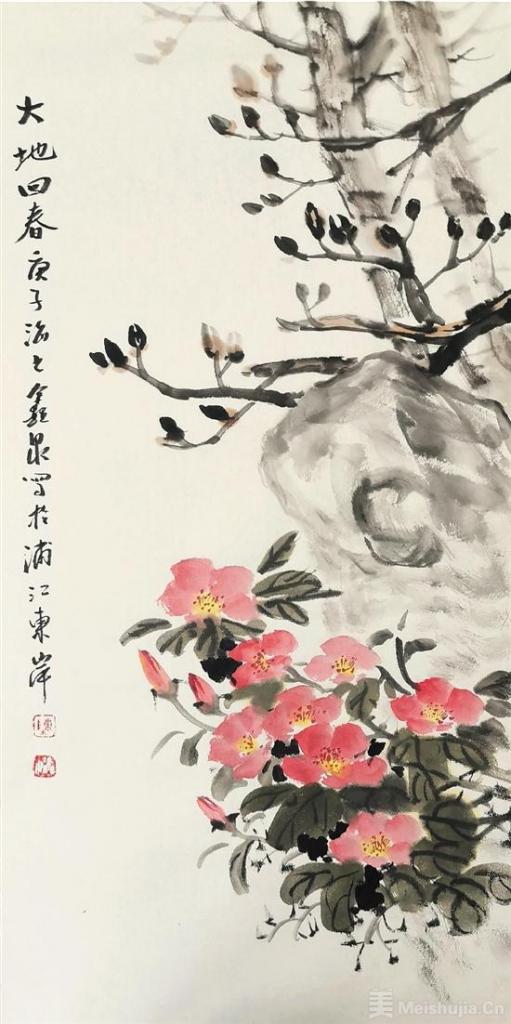 大地回春庚子海上鑫泉写於浦江東岸
美 Meishujia.Cn